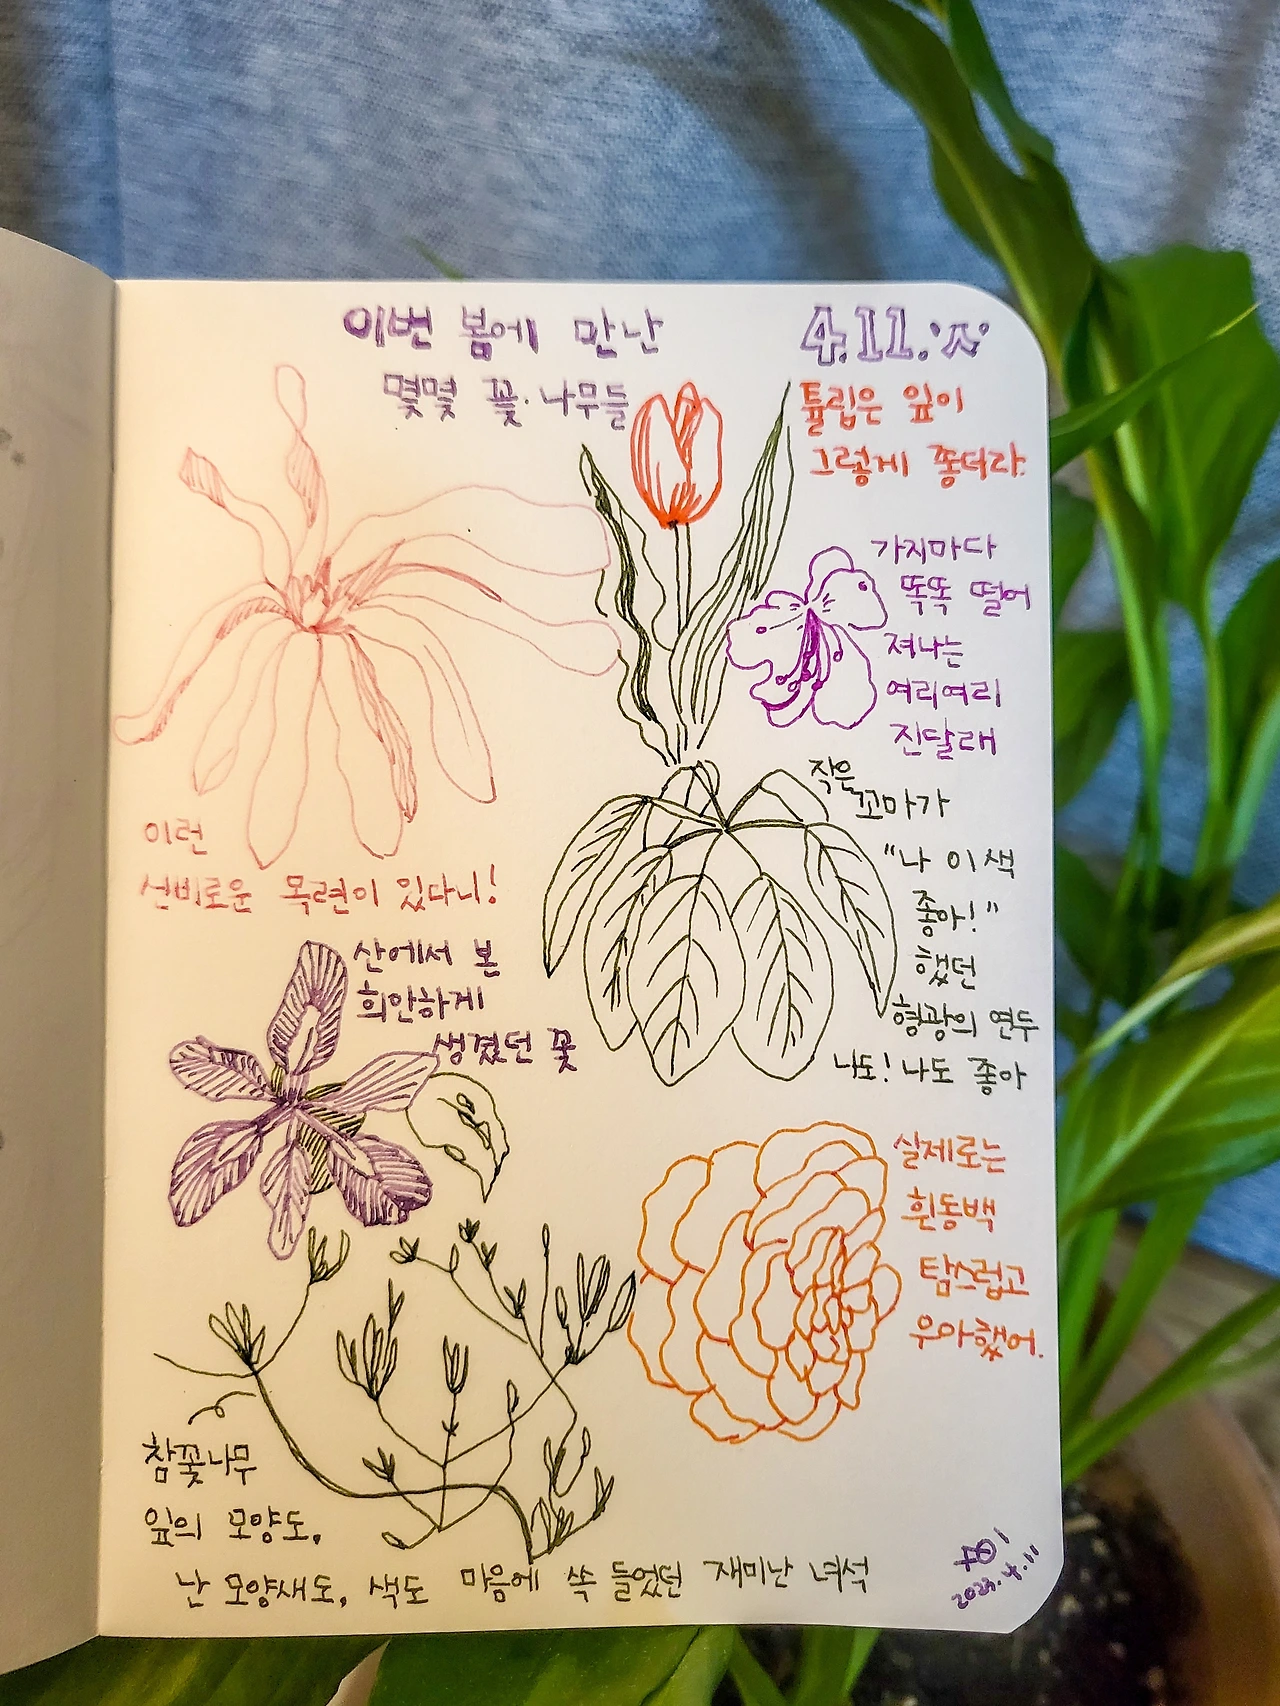 이번 봄에 만난
몇몇 꽃·나무들
4.11.
튤립은 잎이
그렇게 좋더라.
가지마다
똑똑 떨어
져나는
여리여리
진달래
작은
꼬마가
"나 이 색
좋아!"
했던
형광의 연두
나도! 나도 좋아
이런
선비로운 목련이 있다니!
산에서 본
희안하게
생겼던 꽃
실제로는
흰동백
탐스럽고
우아했어.
참꽃나무
잎의 모양도,
난 모양새도, 색도 마음에 쏙 들었던 재미난 녀석
4.11